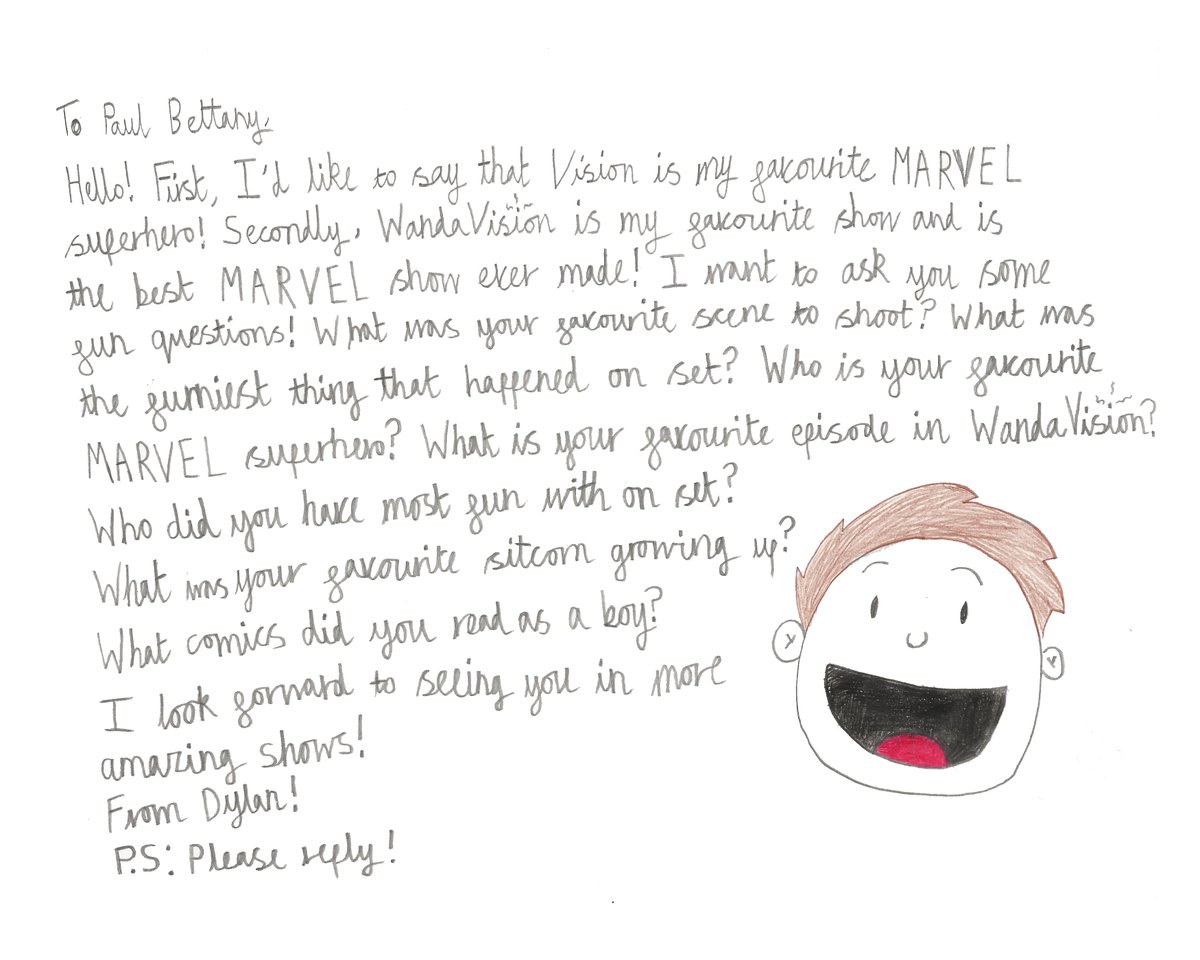 To Paul Bettany,
Hello! First, I'd like to say that Vision is my favourite MARVEL
superhero! Secondly, WandaVision is my favourite show and is
the best MARVEL show ever made! I want to ask you some
fun questions! What was your favourite scene to shoot? What was
the funniest thing that happened on set? Who is your favourite
MARVEL superhero? What is your favourite episode in WandaVision?
Who did you have most fun with on set?
What was your favourite sitcom growing up?
What comics did you read as a boy?
I look forward to seeing you in more
amazing shows!
From Dylan!
P.S: Please reply!